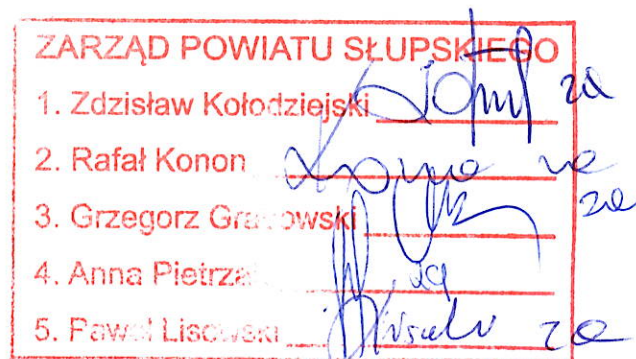 ZARZĄD POWIATU SŁUPSKIEGO
1. Zdzisław Kołodziejski za
2. Rafał Konon za
3. Grzegorz Grabowski za
4. Anna za
5. Paweł Lisowski za